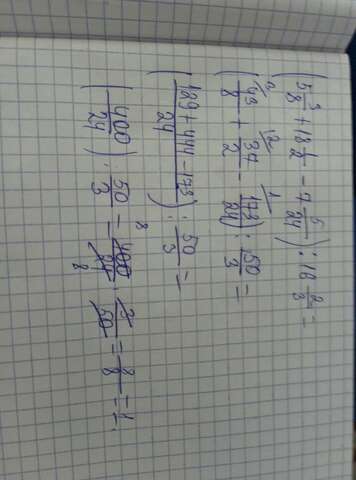 (5 3/8 + 18 1/2 - 7 5/24) : 16 2/3 =
(43/8 + 37/2 - 173/24) : 50/3 =
(129 + 444 - 173 / 24) : 50/3 =
(400/24) : 50/3 = 400/24 · 3/50 = 8/8 = 1.